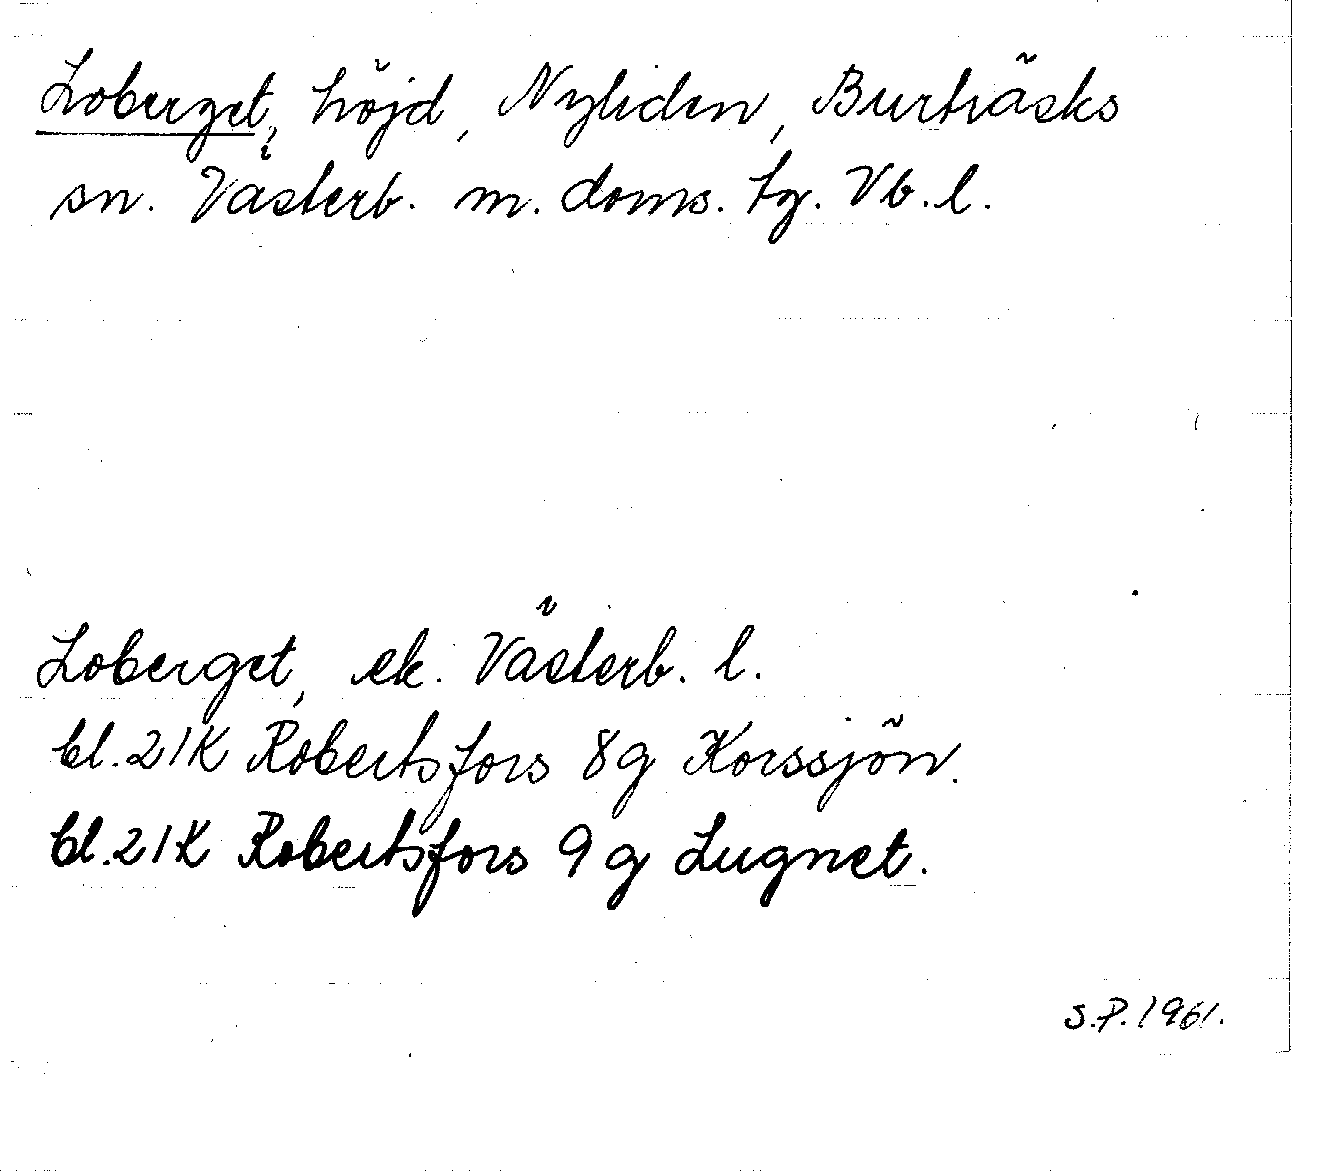 Loberget, höjd, Nyliden, Burträsks
sn. Västerb. m. doms. tg. Vb. l.
Loberget, ek. Västerb. l.
bl. 21K Robertsfors 8g Korssjön.
bl. 21K Robertsfors 9g Lugnet.
S.P. 1961.